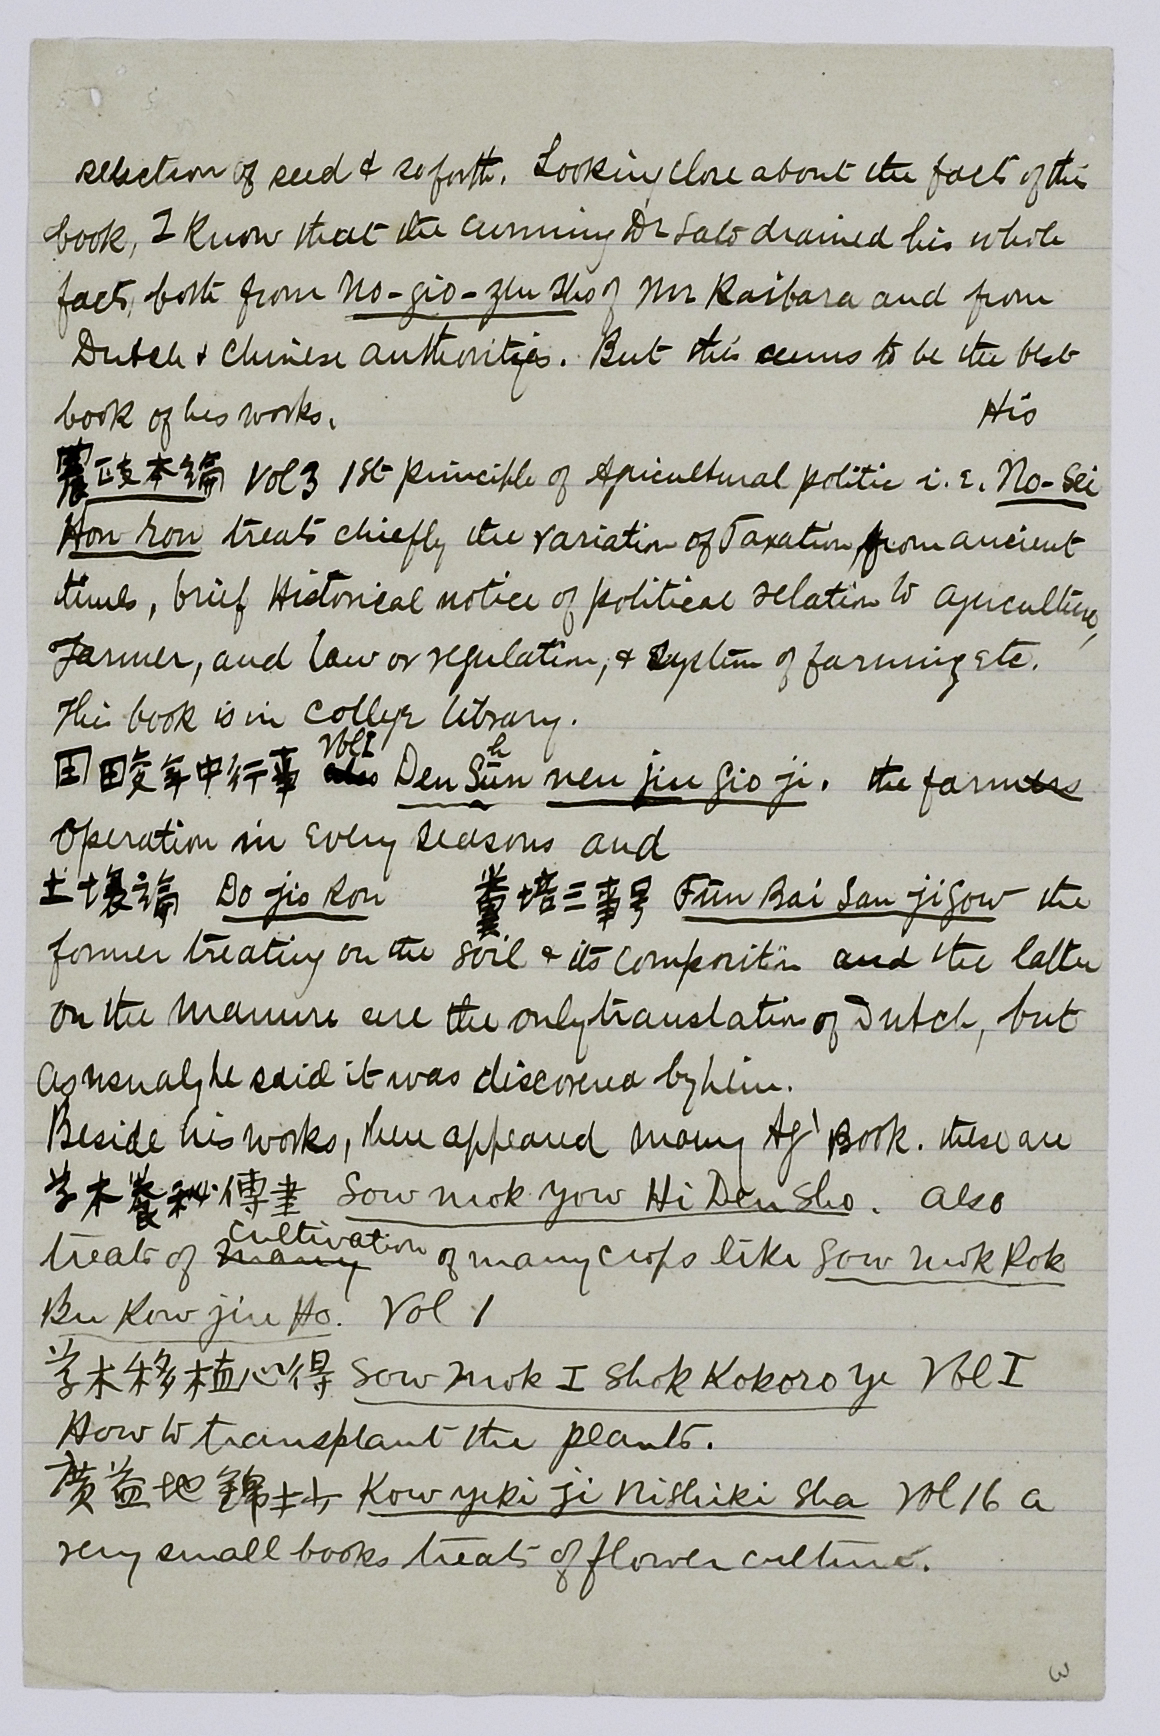 selection of seed & so forth. Looking close about the facts of this
book, I know that the cunning Dr Sato drained his whole
facts, both from No-gio-zen sho of Mr Kaibara and from
Dutch & Chinese authorities. But this seems to be the best
book of his works. His
農政本論 Vol 3 1st principle of Agricultural politic i.e. No-Sei
Hon ron treats chiefly the variation of Taxation from ancient
times, brief Historical notice of political relation to agriculture,
Farmer, and law or regulation, & system of farming etc.
This book is in College library.
田畯年中行事 Vol I Den Shun nen jiu gio ji. the farmers
operation in every seasons and
土壌論 Do jio ron 糞培三事号 Fun Bai San ji gow the
former treating on the soil & its composition and the latter
on the manure are the only translation of Dutch, but
as usualy he said it was discovered by him.
Beside his works, here appeared many Agl Book. these are
草木養秘傳書 Sow mok yow Hi Den Sho. also
treats of cultivation of many crops like Sow mok Rok
Bu Kow jiu Ho. Vol 1
草木移植心得 Sow mok I Shok Kokoro ye Vol I
How to transplant the plants.
廣益地錦抄 Kow yeki ji Nishiki Sha Vol 16 a
very small books treats of flower culture.
3